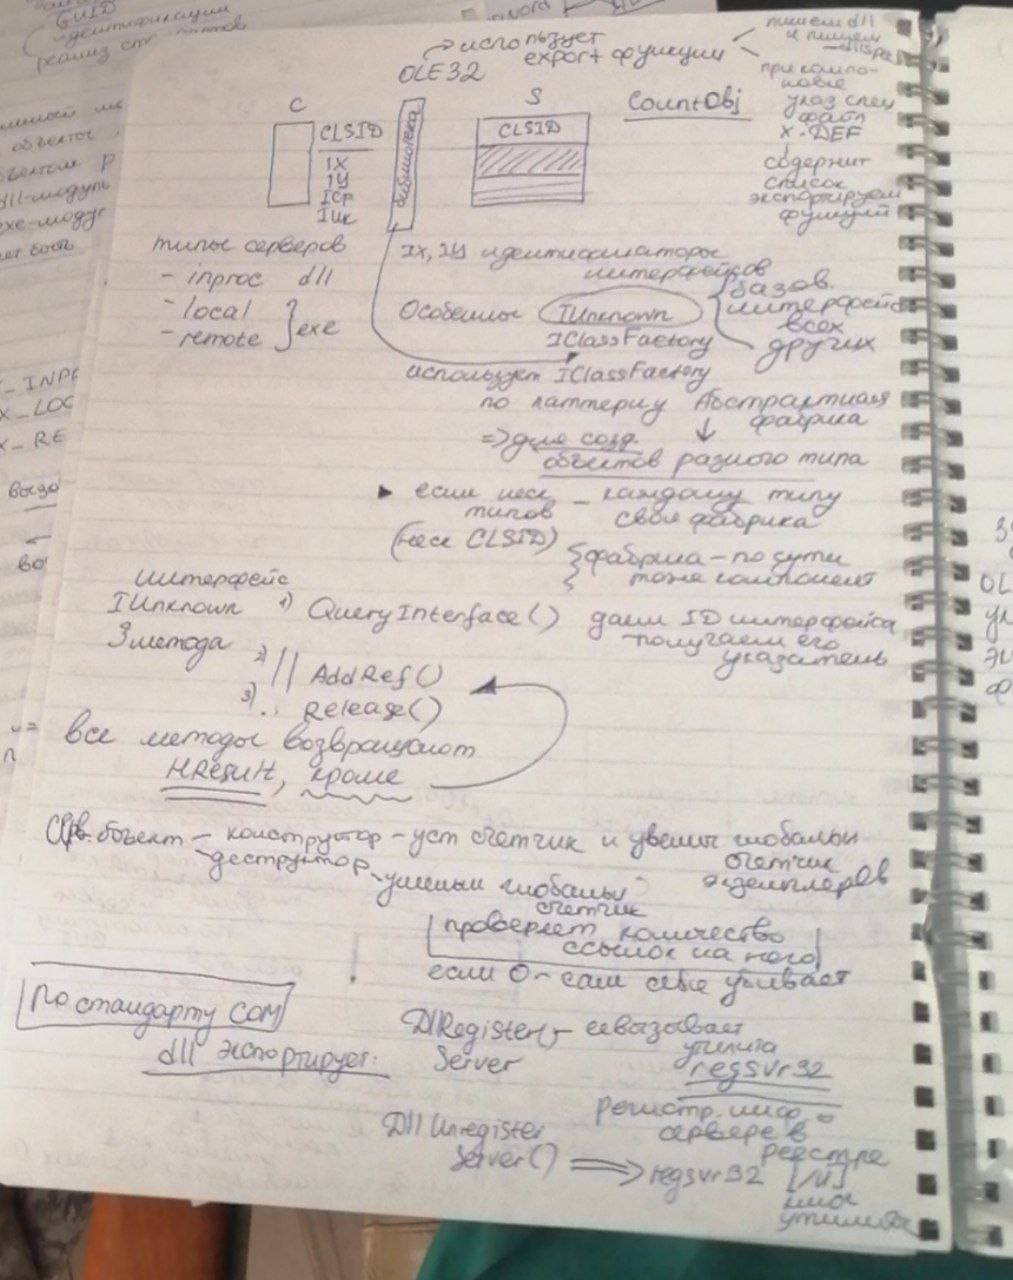 GUID
идентификации
использует
export функции
OLE32
пишем dll
и пишем
при компо-
новке
указ спец
файл
X.DEF
содержит
список
экспортируем
функций
C
CLSID
IX
IY
ICF
IUк
библиотека
S
CLSID
CountObj
типы серверов
- inproc dll
- local
- remote
exe
IX, IY идентификаторы
интерфейсов
Особенны IUnknown
IClassFactory
базов.
интерфейс
всех
других
использует IClassFactory
по паттерну Абстрактная
фабрика
=> для созд
объектов разного типа
если неск
типов
(неск CLSID)
- каждому типу
своя фабрика
фабрика - по сути
тоже компонент
интерфейс
IUnknown
3 метода
1) QueryInterface() даем ID интерфейса
получаем его
указатель
2) || AddRef()
3) .. Release()
все методы возвращают
HResult, кроме
Срв. объект - конструктор - уст счетчик и увелич глобальн
счетчик
экземпляров
- деструктор - уменьш глобальн
счетчик
проверяет количество
ссылок на него
если 0 - сам себя убивает
По стандарту COM
dll экспортирует:
DllRegister() -
Server
утилита
regsvr32
регистр. инф о
сервере в
реестре
Dll Unregister
Server() => regsvr32 [/u]
утилита
dll-модуль
exe-модул
X_INPR
X_LOC
X_RE